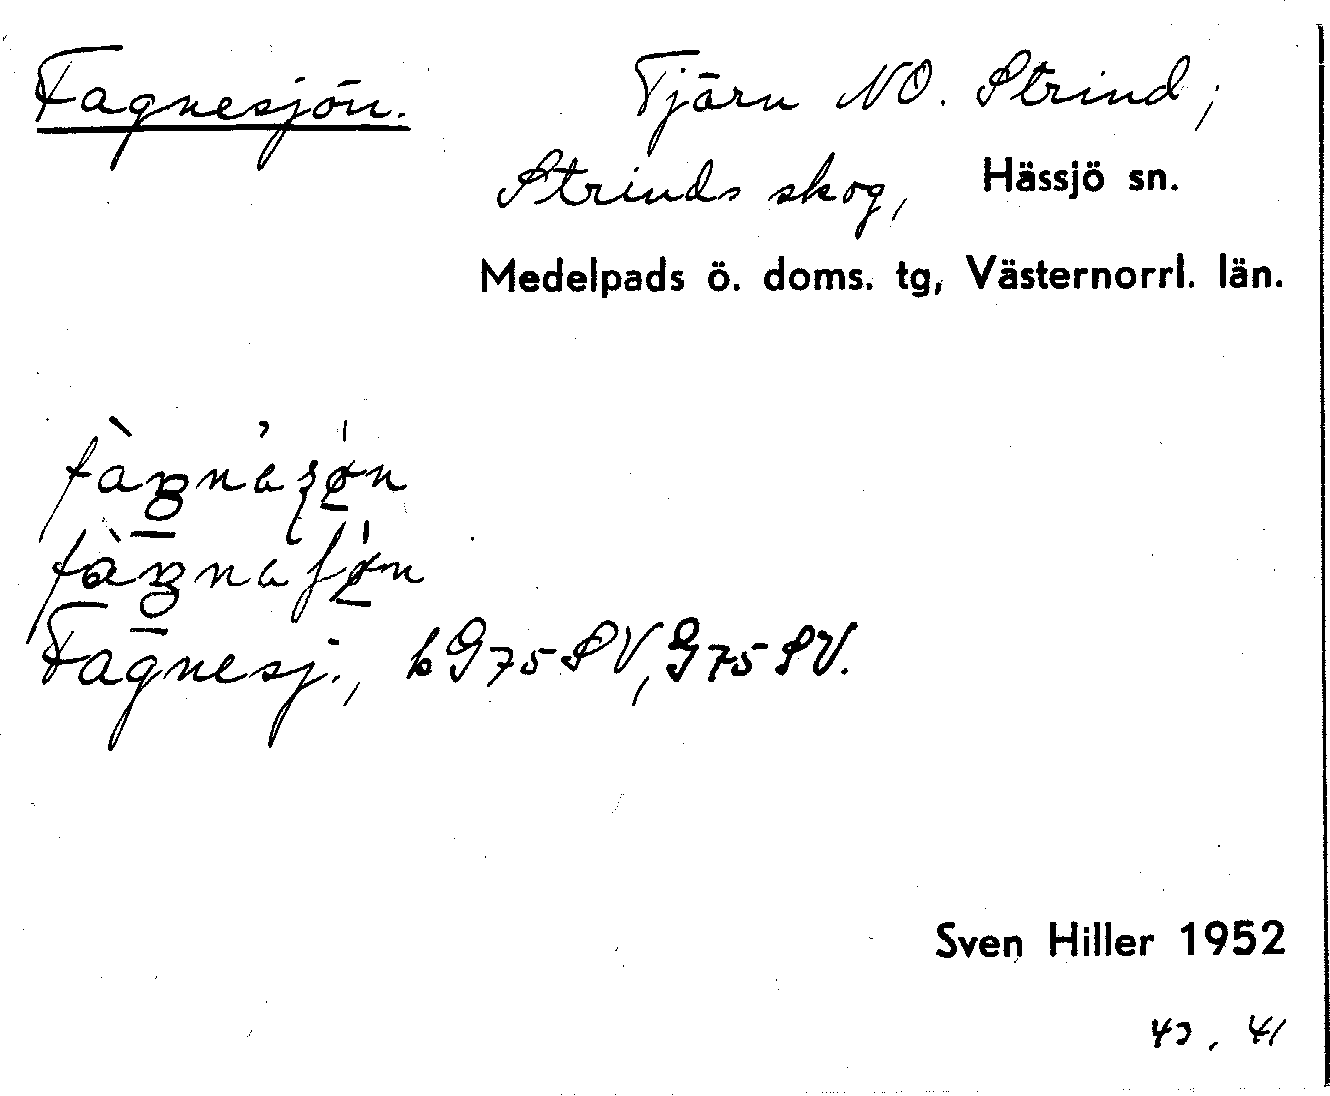 Fagnesjön. Tjärn NO. Strind;
Strinds skog, Hässjö sn.
Medelpads ö. doms. tg, Västernorrl. län.
Fagnesj., bG75SV, G75SV.
Sven Hiller 1952